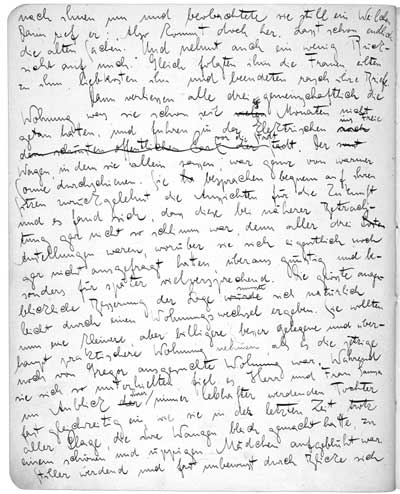 nach ihnen um und beobachtete sie still ein Weilchen.
Dann rief er: Also kommt doch her. Lasst schon endlich
die alten Sachen. Und nehmt auch ein wenig Rück-
sicht auf mich. Gleich folgten ihm die Frauen, eilten
zu ihm liebkosten ihn und beendeten rasch ihre Briefe.
Dann verliessen alle drei gemeinschaftlich die
Wohnung was sie schon seit Monaten nicht
getan hatten und fuhren in der Elektrischen ins Freie
vor die Stadt. Der
Wagen, in dem sie allein sassen, war ganz von warmer
Sonne durchschienen. Sie besprachen bequem auf ihren
Sitzen zurückgelehnt die Aussichten für die Zukunft
und es fand sich, dass diese bei näherer Betrach-
tung gar nicht so schlimm war, denn aller drei
Anstellungen waren, worüber sie sich eigentlich noch
gar nicht ausgefragt hatten überaus günstig und be-
sonders für später vielversprechend. Die grösste augen-
blickliche Besserung der Lage musste sich natürlich
leicht durch einen Wohnungswechsel ergeben. Sie wollten
nun eine kleinere, aber billigere besser gelegene und über-
haupt praktischere Wohnung nehmen, als es die jetzige
noch von Gregor ausgesuchte Wohnung war. Während
sie sich so unterhielten fiel es Herrn und Frau Samsa
im Anblick ihrer immer lebhafter werdenden Tochter
fast gleichzeitig ein, wie sie in der letzten Zeit trotz
aller Plage, die ihre Wangen bleich gemacht hatte, zu
einem schönen und üppigen Mädchen aufgeblüht war
Stiller werdend und fast unbewusst durch Blicke sich